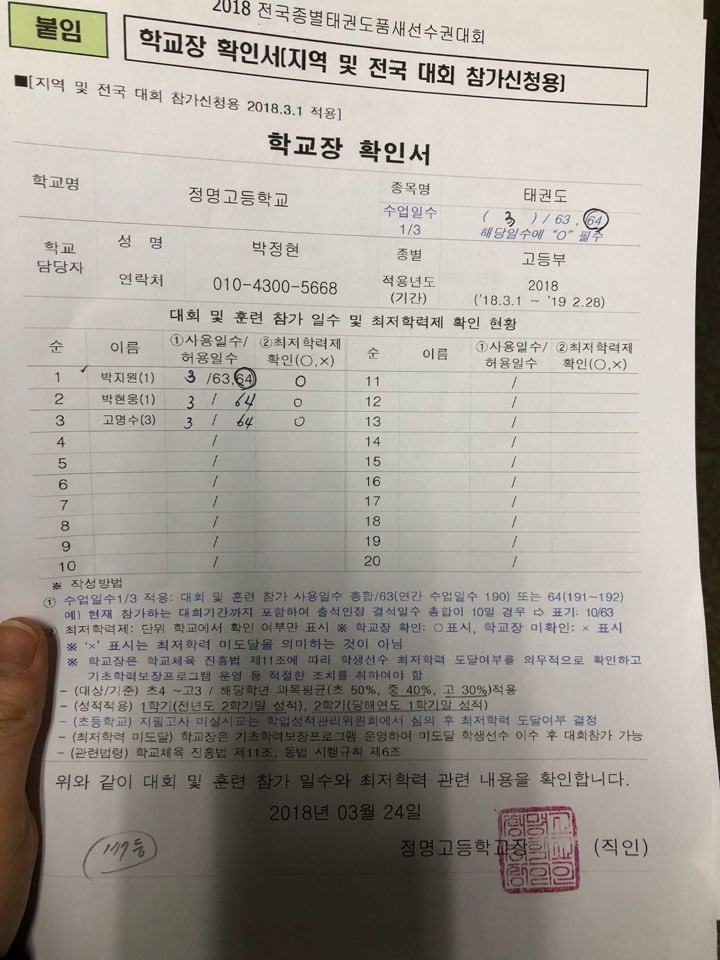 2018 전국종별태권도품새선수권대회
붙임
학교장 확인서(지역 및 전국 대회 참가신청용)
■[지역 및 전국 대회 참가신청용 2018.3.1 적용]
학교장 확인서
학교명 정명고등학교 종목명 태권도
수업일수 1/3 ( 3 ) / 63 , 64
해당일수에 "O" 필수
학교 담당자 성 명 박정현 종별 고등부
연락처 010-4300-5668 적용년도 (기간) 2018 ('18.3.1 ~ '19 2.28)
대회 및 훈련 참가 일수 및 최저학력제 확인 현황
순 이름 ①사용일수/허용일수 ②최저학력제 확인(○,×) 순 이름 ①사용일수/허용일수 ②최저학력제 확인(○,×)
1 박지원(1) 3 /63,64 ○ 11 /
2 박현웅(1) 3 / 64 ○ 12 /
3 고명수(3) 3 / 64 ○ 13 /
4 / 14 /
5 / 15 /
6 / 16 /
7 / 17 /
8 / 18 /
9 / 19 /
10 / 20 /
※ 작성방법
① 수업일수1/3 적용: 대회 및 훈련 참가 사용일수 총합/63(연간 수업일수 190) 또는 64(191~192)
예) 현재 참가하는 대회기간까지 포함하여 출석인정 결석일수 총합이 10일 경우 ⇨ 표기: 10/63
최저학력제: 단위 학교에서 확인 여부만 표시 ※ 학교장 확인: ○표시, 학교장 미확인: × 표시
※ '×' 표시는 최저학력 미도달을 의미하는 것이 아님
※ 학교장은 학교체육 진흥법 제11조에 따라 학생선수 최저학력 도달여부를 의무적으로 확인하고
기초학력보장프로그램 운영 등 적절한 조치를 취하여야 함
- (대상/기준) 초4 ~고3 / 해당학년 과목평균(초 50%, 중 40%, 고 30%)적용
- (성적적용) 1학기(전년도 2학기말 성적), 2학기(당해연도 1학기말 성적)
- (초등학교) 지필고사 미실시교는 학업성적관리위원회에서 심의 후 최저학력 도달여부 결정
- (최저학력 미도달) 학교장은 기초학력보장프로그램 운영하여 미도달 학생선수 이수 후 대회참가 가능
- (관련법령) 학교체육 진흥법 제11조, 동법 시행규칙 제6조
위와 같이 대회 및 훈련 참가 일수와 최저학력 관련 내용을 확인합니다.
2018년 03월 24일
정명고등학교장 (직인)